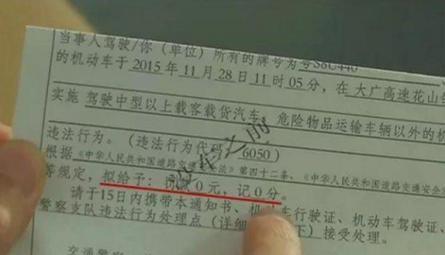 当事人驾驶/你（单位）所有的牌号为
的机动车于 2015 年 11 月 28 日 11 时 05 分，在 大广高速花山
实施 驾驶中型以上载客载货汽车、危险物品运输车辆以外的机
违法行为。（违法行为代码 6050）
根据 《中华人民共和国道路交通安全法》第四十二条、《中华人民共和国道路交通安全
等规定，拟给予： 0 元，记 0 分。
请于15日内携带本通知书、机动车行驶证、机动车驾驶证、
警察支队违法行为处理点（详细 下）接受处理。